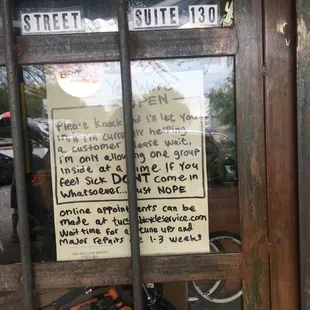 STREET SUITE 130
OPEN
Please knock and I'll let you
in. I'm currently helping
a customer please wait.
i'm only allowing one group
inside at a time. If you
feel sick DON'T come in
whatsoever... just NOPE
online appointments can be
made at
wait time for tune ups and
major repairs 1-3 weeks